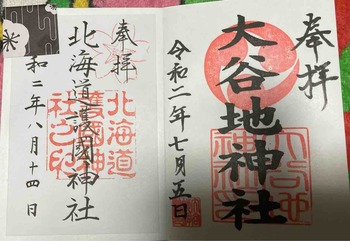 奉拝
大谷地神社
令和二年七月五日
奉拝
北海道護國神社
北海道
護國神
社之印
和二年八月十四日